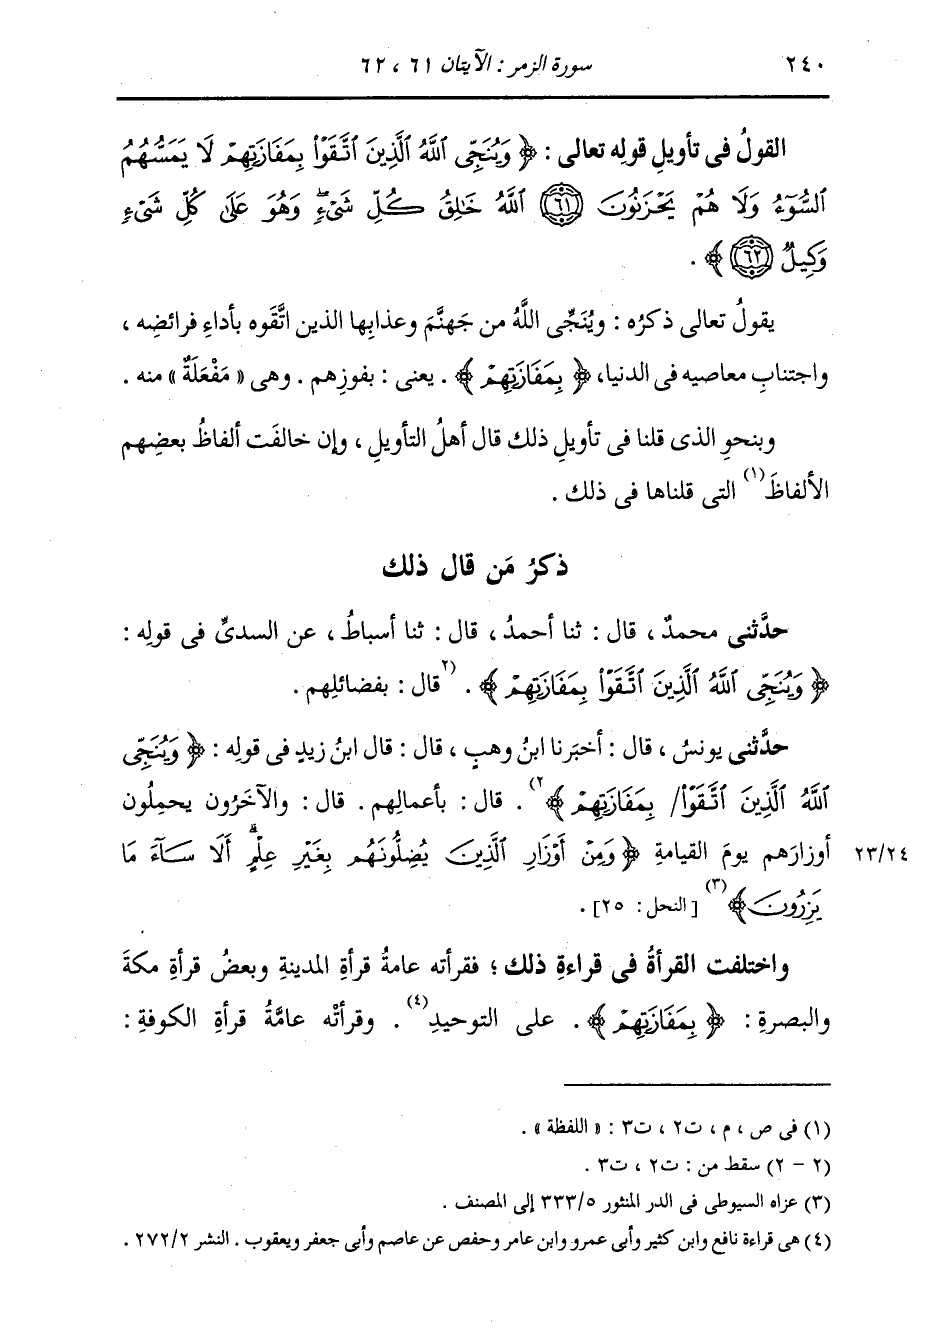 ٢٤٠ سورة الزمر : الآيتان ٦١ ، ٦٢
القولُ فى تأويلِ قولِه تعالى : ﴿ وَيُنَجِّى ٱللَّهُ ٱلَّذِينَ ٱتَّقَوْا۟ بِمَفَازَتِهِمْ لَا يَمَسُّهُمُ
ٱلسُّوٓءُ وَلَا هُمْ يَحْزَنُونَ ۝٦١ ٱللَّهُ خَٰلِقُ كُلِّ شَىْءٍۖ وَهُوَ عَلَىٰ كُلِّ شَىْءٍ
وَكِيلٌ ۝٦٢ ﴾ .
يقولُ تعالى ذكرُه : ويُنَجِّى اللَّهُ من جَهنَّمَ وعذابِها الذين اتَّقَوه بأداءِ فرائضِه ،
واجتنابِ معاصيه فى الدنيا، ﴿ بِمَفَازَتِهِمْ ﴾ . يعنى : بفوزِهم . وهى « مَفْعَلَةٌ » منه .
وبنحوِ الذى قلنا فى تأويلِ ذلك قال أهلُ التأويلِ ، وإن خالفَت ألفاظُ بعضِهم
الألفاظَ(١) التى قلناها فى ذلك .
ذكرُ مَن قال ذلك
حدَّثنى محمدٌ ، قال : ثنا أحمدُ ، قال : ثنا أسباطُ ، عن السدىِّ فى قولِه :
﴿ وَيُنَجِّى ٱللَّهُ ٱلَّذِينَ ٱتَّقَوْا۟ بِمَفَازَتِهِمْ ﴾ . (٢قال : بفضائلِهم .
حدَّثنى يونسُ ، قال : أخبَرنا ابنُ وهبٍ ، قال : قال ابنُ زيدٍ فى قولِه : ﴿ وَيُنَجِّى
ٱللَّهُ ٱلَّذِينَ ٱتَّقَوْا۟/ بِمَفَازَتِهِمْ ﴾٢) . قال : بأعمالِهم . قال : والآخَرُون يحمِلُون
أوزارَهم يومَ القيامةِ ﴿ وَمِنْ أَوْزَارِ ٱلَّذِينَ يُضِلُّونَهُم بِغَيْرِ عِلْمٍۗ أَلَا سَآءَ مَا ٢٣/٢٤
يَزِرُونَ ﴾(٣) [النحل : ٢٥] .
واختلفت القرأةُ فى قراءةِ ذلك ؛ فقرأته عامةُ قرأةِ المدينةِ وبعضُ قرأةِ مكةَ
والبصرةِ : ﴿ بِمَفَازَتِهِمْ ﴾ . على التوحيدِ(٤) . وقرأتْه عامَّةُ قرأةِ الكوفةِ :
(١) فى ص ، م ، ت٢ ، ت٣ : « اللفظة » .
(٢ - ٢) سقط من : ت٢ ، ت٣ .
(٣) عزاه السيوطى فى الدر المنثور ٣٣٣/٥ إلى المصنف .
(٤) هى قراءة نافع وابن كثير وأبى عمرو وابن عامر وحفص عن عاصم وأبى جعفر ويعقوب . النشر ٢٧٢/٢ .